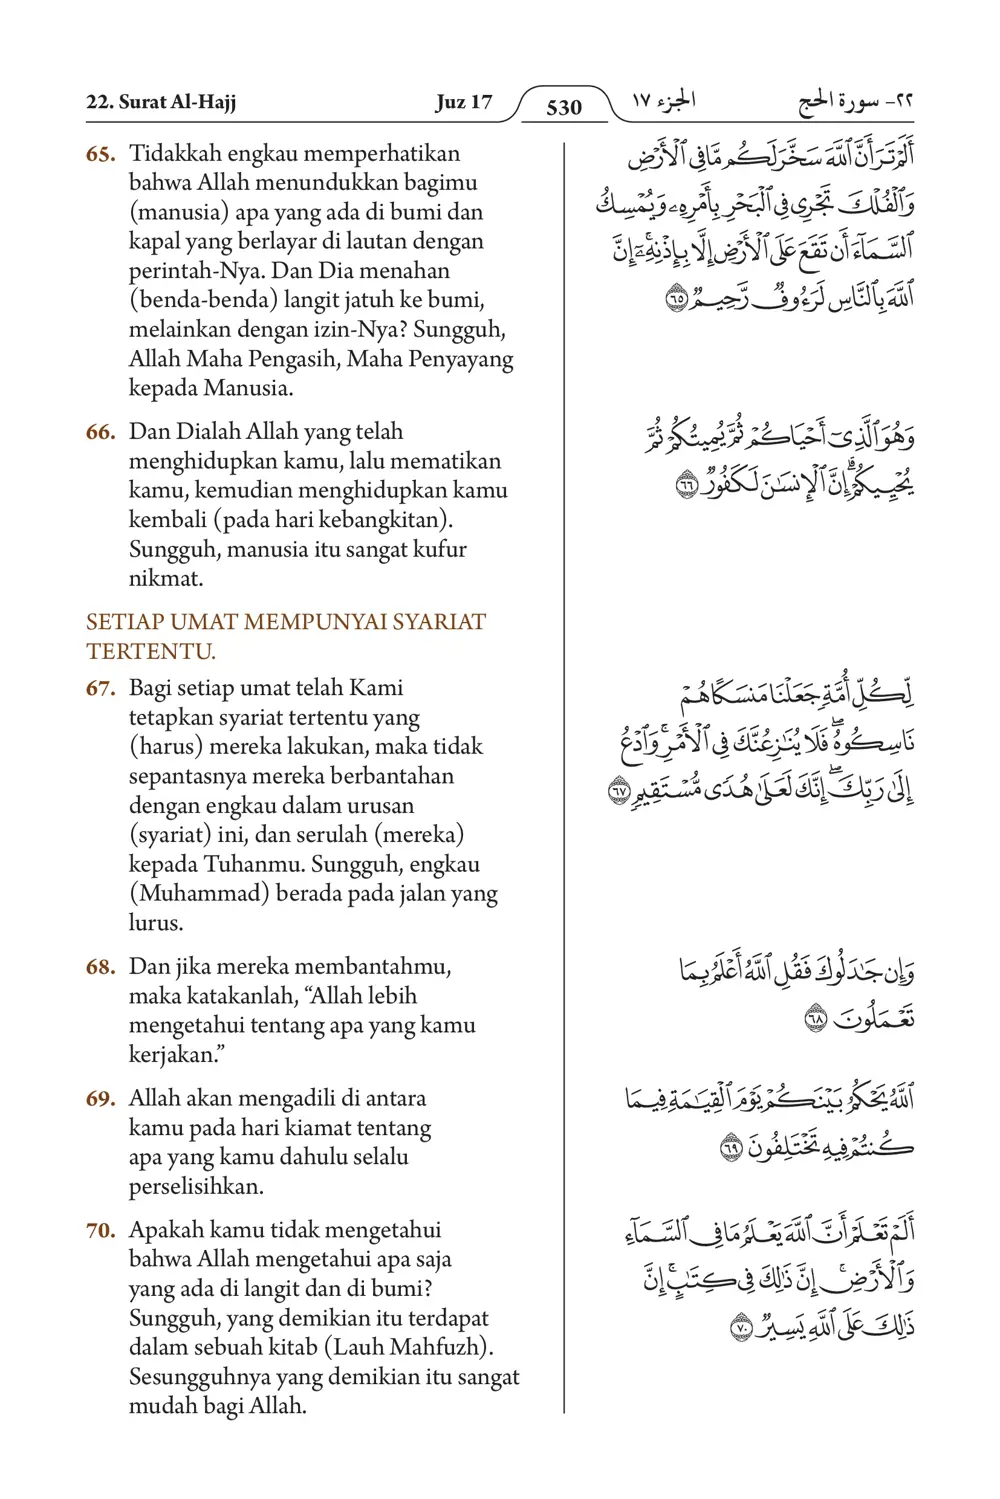 22. Surat Al-Hajj
Juz 17
530
الجزء ١٧
٢٢- سورة الحج
65. Tidakkah engkau memperhatikan
bahwa Allah menundukkan bagimu
(manusia) apa yang ada di bumi dan
kapal yang berlayar di lautan dengan
perintah-Nya. Dan Dia menahan
(benda-benda) langit jatuh ke bumi,
melainkan dengan izin-Nya? Sungguh,
Allah Maha Pengasih, Maha Penyayang
kepada Manusia.
66. Dan Dialah Allah yang telah
menghidupkan kamu, lalu mematikan
kamu, kemudian menghidupkan kamu
kembali (pada hari kebangkitan).
Sungguh, manusia itu sangat kufur
nikmat.
SETIAP UMAT MEMPUNYAI SYARIAT
TERTENTU.
67. Bagi setiap umat telah Kami
tetapkan syariat tertentu yang
(harus) mereka lakukan, maka tidak
sepantasnya mereka berbantahan
dengan engkau dalam urusan
(syariat) ini, dan serulah (mereka)
kepada Tuhanmu. Sungguh, engkau
(Muhammad) berada pada jalan yang
lurus.
68. Dan jika mereka membantahmu,
maka katakanlah, “Allah lebih
mengetahui tentang apa yang kamu
kerjakan.”
69. Allah akan mengadili di antara
kamu pada hari kiamat tentang
apa yang kamu dahulu selalu
perselisihkan.
70. Apakah kamu tidak mengetahui
bahwa Allah mengetahui apa saja
yang ada di langit dan di bumi?
Sungguh, yang demikian itu terdapat
dalam sebuah kitab (Lauh Mahfuzh).
Sesungguhnya yang demikian itu sangat
mudah bagi Allah.
أَلَمْ تَرَ أَنَّ ٱللَّهَ سَخَّرَ لَكُم مَّا فِى ٱلْأَرْضِ
وَٱلْفُلْكَ تَجْرِى فِى ٱلْبَحْرِ بِأَمْرِهِۦ وَيُمْسِكُ
ٱلسَّمَآءَ أَن تَقَعَ عَلَى ٱلْأَرْضِ إِلَّا بِإِذْنِهِۦٓ ۗ إِنَّ
ٱللَّهَ بِٱلنَّاسِ لَرَءُوفٌ رَّحِيمٌ ٦٥
وَهُوَ ٱلَّذِىٓ أَحْيَاكُمْ ثُمَّ يُمِيتُكُمْ ثُمَّ
يُحْيِيكُمْ ۗ إِنَّ ٱلْإِنسَٰنَ لَكَفُورٌ ٦٦
لِّكُلِّ أُمَّةٍ جَعَلْنَا مَنسَكًا هُمْ
نَاسِكُوهُ ۖ فَلَا يُنَٰزِعُنَّكَ فِى ٱلْأَمْرِ ۚ وَٱدْعُ
إِلَىٰ رَبِّكَ ۖ إِنَّكَ لَعَلَىٰ هُدًى مُّسْتَقِيمٍ ٦٧
وَإِن جَٰدَلُوكَ فَقُلِ ٱللَّهُ أَعْلَمُ بِمَا
تَعْمَلُونَ ٦٨
ٱللَّهُ يَحْكُمُ بَيْنَكُمْ يَوْمَ ٱلْقِيَٰمَةِ فِيمَا
كُنتُمْ فِيهِ تَخْتَلِفُونَ ٦٩
أَلَمْ تَعْلَمْ أَنَّ ٱللَّهَ يَعْلَمُ مَا فِى ٱلسَّمَآءِ
وَٱلْأَرْضِ ۗ إِنَّ ذَٰلِكَ فِى كِتَٰبٍ ۚ إِنَّ
ذَٰلِكَ عَلَى ٱللَّهِ يَسِيرٌ ٧٠